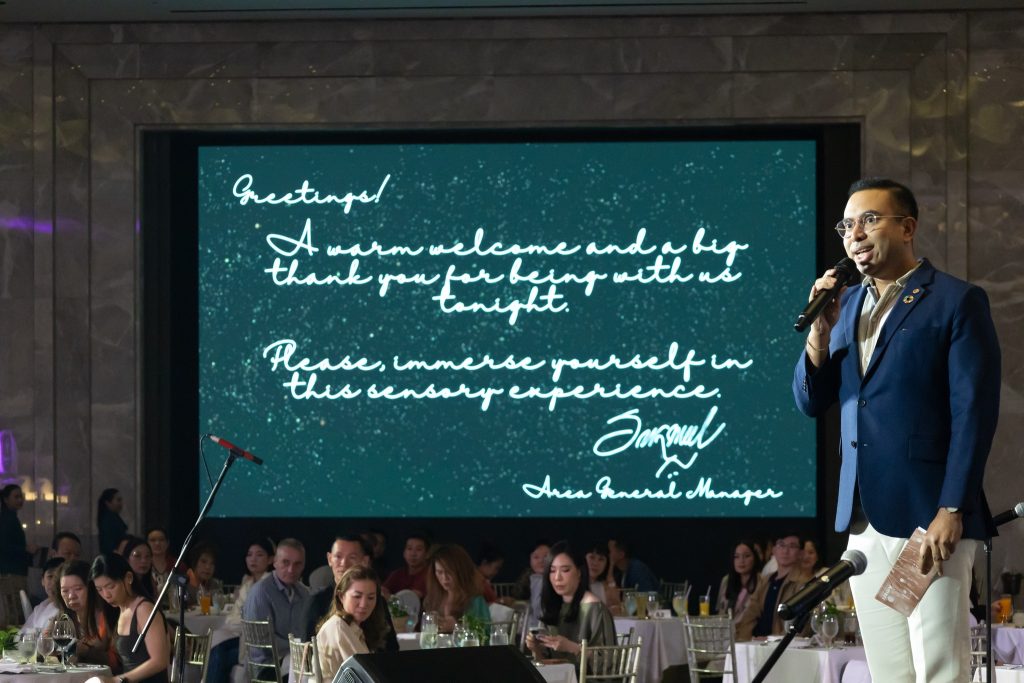 Greetings!
A warm welcome and a big
thank you for being with us
tonight.
Please, immerse yourself in
this sensory experience.
Area General Manager